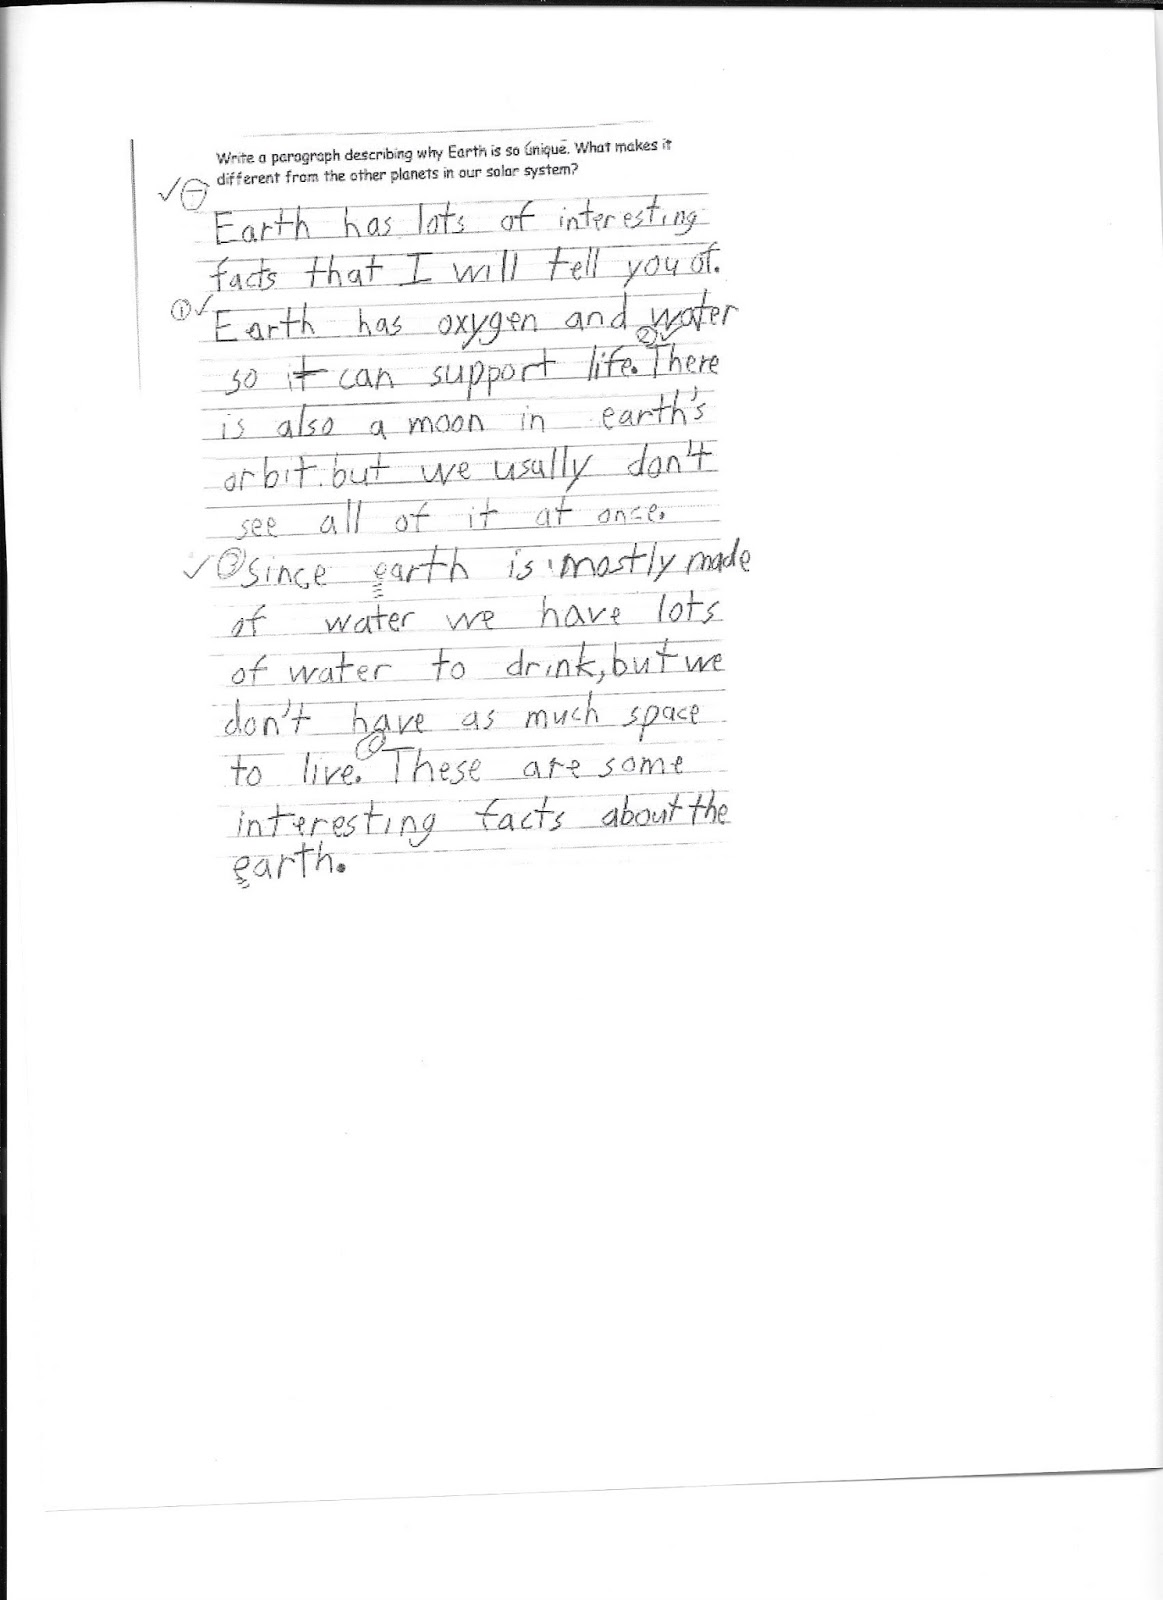 Write a paragraph describing why Earth is so unique. What makes it
different from the other planets in our solar system?
Earth has lots of interesting
facts that I will tell you of.
① Earth has oxygen and water
②
so it can support life. There
is also a moon in earth's
orbit. but we usally don't
see all of it at once.
③ since earth is mostly made
of water we have lots
of water to drink, but we
don't have as much space
to live. These are some
interesting facts about the
earth.